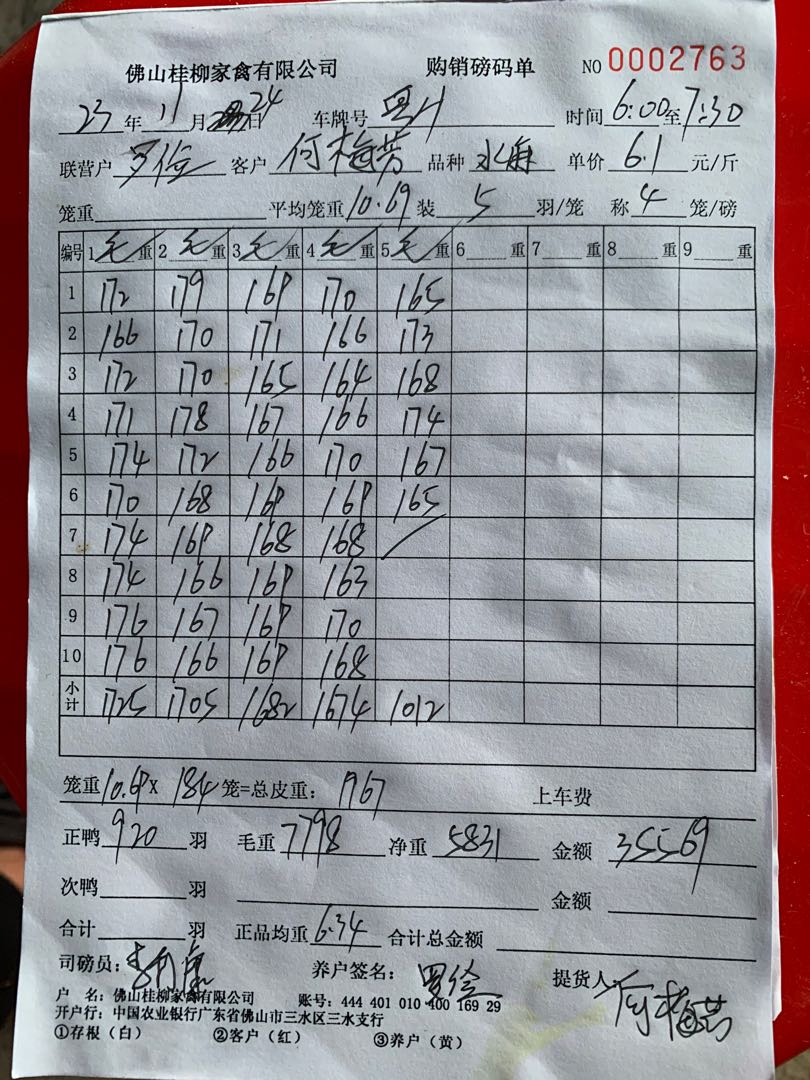 佛山桂柳家禽有限公司 购销磅码单 NO 0002763
23 年 11 月 24 日 车牌号 时间 6:00 至 7:30
联营户 客户 何梅芳 品种 水麻 单价 6.1 元/斤
笼重 平均笼重 10.69 装 5 羽/笼 称 4 笼/磅
编号 1 毛 重 2 毛 重 3 毛 重 4 毛 重 5 毛 重 6 重 7 重 8 重 9 重
1 172 179 169 170 165
2 166 170 171 166 173
3 172 170 165 164 168
4 171 178 167 166 174
5 174 172 166 170 167
6 170 168 169 169 165
7 174 169 168 168
8 174 166 169 163
9 176 167 169 170
10 176 166 169 168
小计 1725 1705 1682 1674 1012
笼重 10.69 X 184 笼=总皮重: 1967 上车费
正鸭 920 羽 毛重 7798 净重 5831 金额 35569
次鸭 羽 金额
合计 羽 正品均重 6.34 合计总金额
司磅员: 养户签名: 提货人: 何梅芳
户 名: 佛山桂柳家禽有限公司 账号: 444 401 010 400 169 29
开户行: 中国农业银行广东省佛山市三水区三水支行
①存根(白) ②客户(红) ③养户(黄)